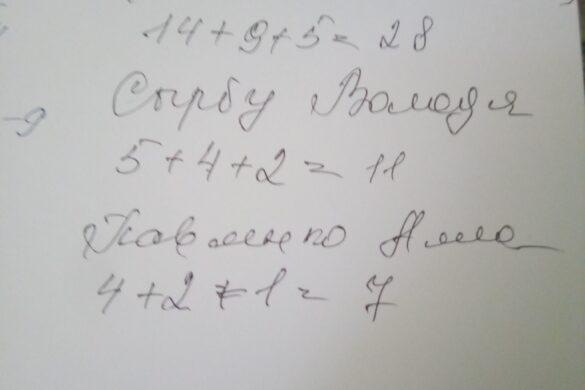 14+9+5= 28
Сырбу Володя
-9
5+4+2= 11
Павленко Алла
4+2+1= 7